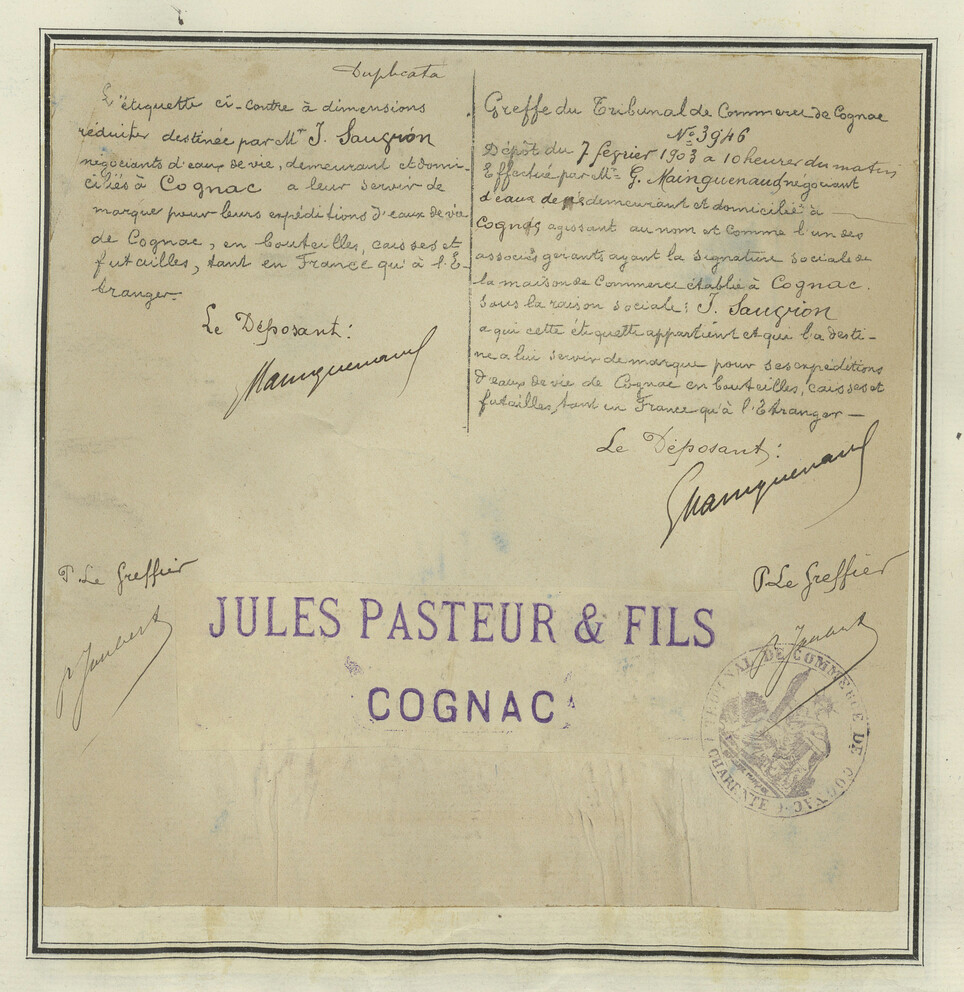 Duplicata
L'étiquette ci-contre à dimensions
réduites destinée par Mrs J. Saugrion
négociants d'eaux de vie, demeurant et domi-
ciliés à Cognac a leur servir de
marque pour leurs expéditions d'eaux de vie
de Cognac, en bouteilles, caisses et
futailles, tant en France qu'à l'E-
tranger.
Le Déposant:
GMainguenaud
P. Le Greffier
Greffe du Tribunal de Commerce de Cognac
No 3946
Dépôt du 7 février 1903 a 10 heures du matin
Effectué par Mr G. Mainguenaud négociant
d'eaux de vie demeurant et domicilié à
Cognac agissant au nom et comme l'un des
associés gerants ayant la signature sociale de
la maison de Commerce établie à Cognac.
sous la raison sociale: J. Saugrion
a qui cette étiquette appartient et qui l'a desti-
né a lui servir de marque pour ses expéditions
d'eaux de vie de Cognac en bouteilles, caisses et
futailles, tant en France qu'à l'Etranger —
Le Déposant:
GMainguenaud
P Le Greffier
JULES PASTEUR & FILS
COGNAC
TRIBUNAL DE COMMERCE DE COGNAC
CHARENTE